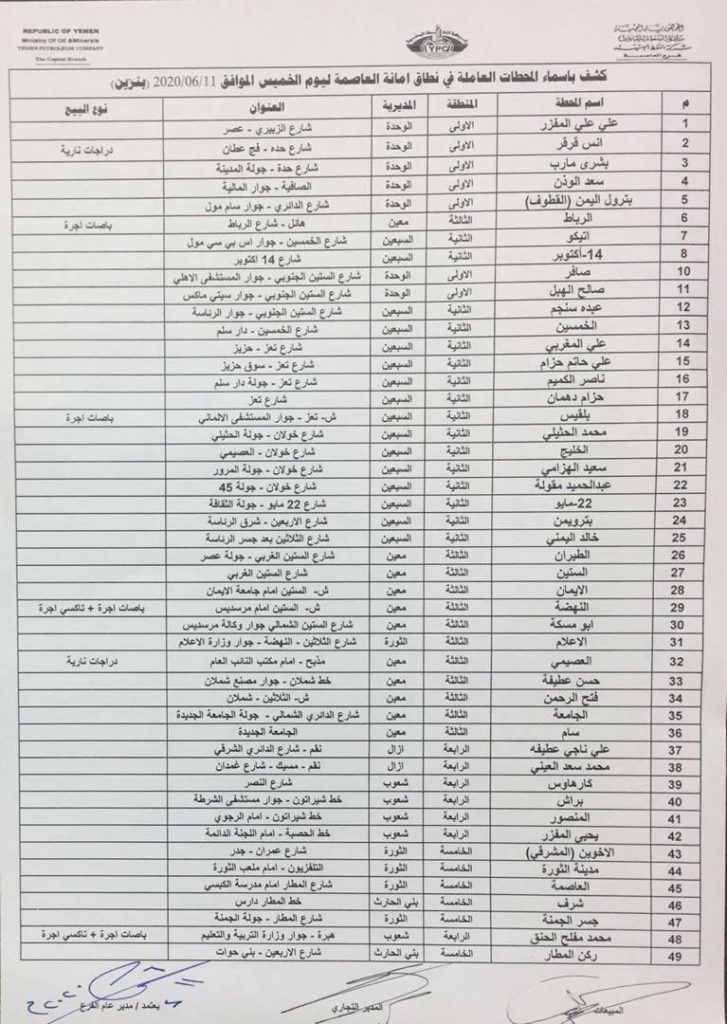 REPUBLIC OF YEMEN
Ministry Of Oil &Minerals
YEMEN PETROLEUM COMPANY
The Capital Branch
YPC
الجمهورية اليمنية
كشف باسماء المحطات العاملة في نطاق امانة العاصمة ليوم الخميس الموافق 2020/06/11 (بنزين)
م اسم المحطة المنطقة المديرية العنوان نوع البيع
1 علي علي المفزر الاولى الوحدة شارع الزبيري - عصر
2 انس قرقر الاولى الوحدة شارع حده - فج عطان دراجات نارية
3 بشرى مارب الاولى الوحدة شارع حدة - جولة المدينة
4 سعد الوذن الاولى الوحدة الصافية - جوار المالية
5 بترول اليمن (القطوف) الاولى الوحدة شارع الدائري - جوار سام مول
6 الرباط الثالثة معين هائل - شارع الرباط باصات اجرة
7 اتيكو الثانية السبعين شارع الخمسين - جوار اس بي سي مول
8 14-أكتوبر الثانية السبعين شارع 14 اكتوبر
10 صافر الاولى الوحدة شارع الستين الجنوبي - جوار المستشفى الاهلي
11 صالح الهبل الاولى الوحدة شارع الستين الجنوبي - جوار سيتي ماكس
12 عبده سنجم الثانية السبعين شارع الستين الجنوبي - جوار الرئاسة
13 الخمسين الثانية السبعين شارع الخمسين - دار سلم
14 علي المغربي الثانية السبعين شارع تعز - حزيز
15 علي حاتم حزام الثانية السبعين شارع تعز - سوق حزيز
16 ناصر الكميم الثانية السبعين شارع تعز - جولة دار سلم
17 حزام دهمان الثانية السبعين شارع تعز
18 بلقيس الثانية السبعين ش- تعز - جوار المستشفى الالماني باصات اجرة
19 محمد الحثيلي الثانية السبعين شارع خولان - جولة الحثيلي
20 الخليج الثانية السبعين شارع خولان - العصيمي
21 سعيد الهزامي الثانية السبعين شارع خولان - جولة المرور
22 عبدالحميد مقولة الثانية السبعين شارع خولان - جولة 45
23 22-مايو الثانية السبعين شارع 22 مايو - جولة الثقافة
24 بترويمن الثانية السبعين شارع الاربعين - شرق الرئاسة
25 خالد اليمني الثانية السبعين شارع الثلاثين بعد جسر الرئاسة
26 الطيران الثالثة معين شارع الستين الغربي - جولة عصر
27 الستين الثالثة معين شارع الستين الغربي
28 الايمان الثالثة معين ش- الستين امام جامعة الايمان
29 النهضة الثالثة معين ش- الستين امام مرسديس باصات اجرة + تاكسي اجرة
30 ابو مسكة الثالثة معين شارع الستين الشمالي جوار وكالة مرسديس
31 الاعلام الثالثة الثورة شارع الثلاثين - النهضة - جوار وزارة الاعلام
32 العصيمي الثالثة معين مذبح - امام مكتب النائب العام دراجات نارية
33 حسن عطيفة الثالثة معين خط شملان - جوار مصنع شملان
34 فتح الرحمن الثالثة معين ش- الثلاثين - شملان
35 الجامعة الثالثة معين شارع الدائري الشمالي - جولة الجامعة الجديدة
36 سام الثالثة معين الجامعة الجديدة
37 علي ناجي عطيفه الرابعة ازال نقم - شارع الدائري الشرقي
38 محمد سعد العيني الرابعة ازال نقم - مسيك - شارع غمدان
39 كارهاوس الرابعة شعوب شارع النصر
40 براش الرابعة شعوب خط شيراتون - جوار مستشفى الشرطة
41 المنصور الرابعة شعوب خط شيراتون - امام الرجوي
42 يحيى المفزر الرابعة شعوب خط الحصبة - امام اللجنة الدائمة
43 الاخوين (المشرقي) الخامسة الثورة شارع عمران - جدر
44 مدينة الثورة الخامسة الثورة التلفزيون - امام ملعب الثورة
45 العاصمة الخامسة الثورة شارع المطار امام مدرسة الكبسي
46 شرف الخامسة بني الحارث خط المطار دارس
47 جسر الجمنة الخامسة الثورة شارع المطار - جولة الجمنة
48 محمد مفلح الحنق الرابعة شعوب هبرة - جوار وزارة التربية والتعليم باصات اجرة + تاكسي اجرة
49 ركن المطار الخامسة بني الحارث شارع الاربعين - بني حوات
المبيعات المدير التجاري يعتمد / مدير عام الفرع